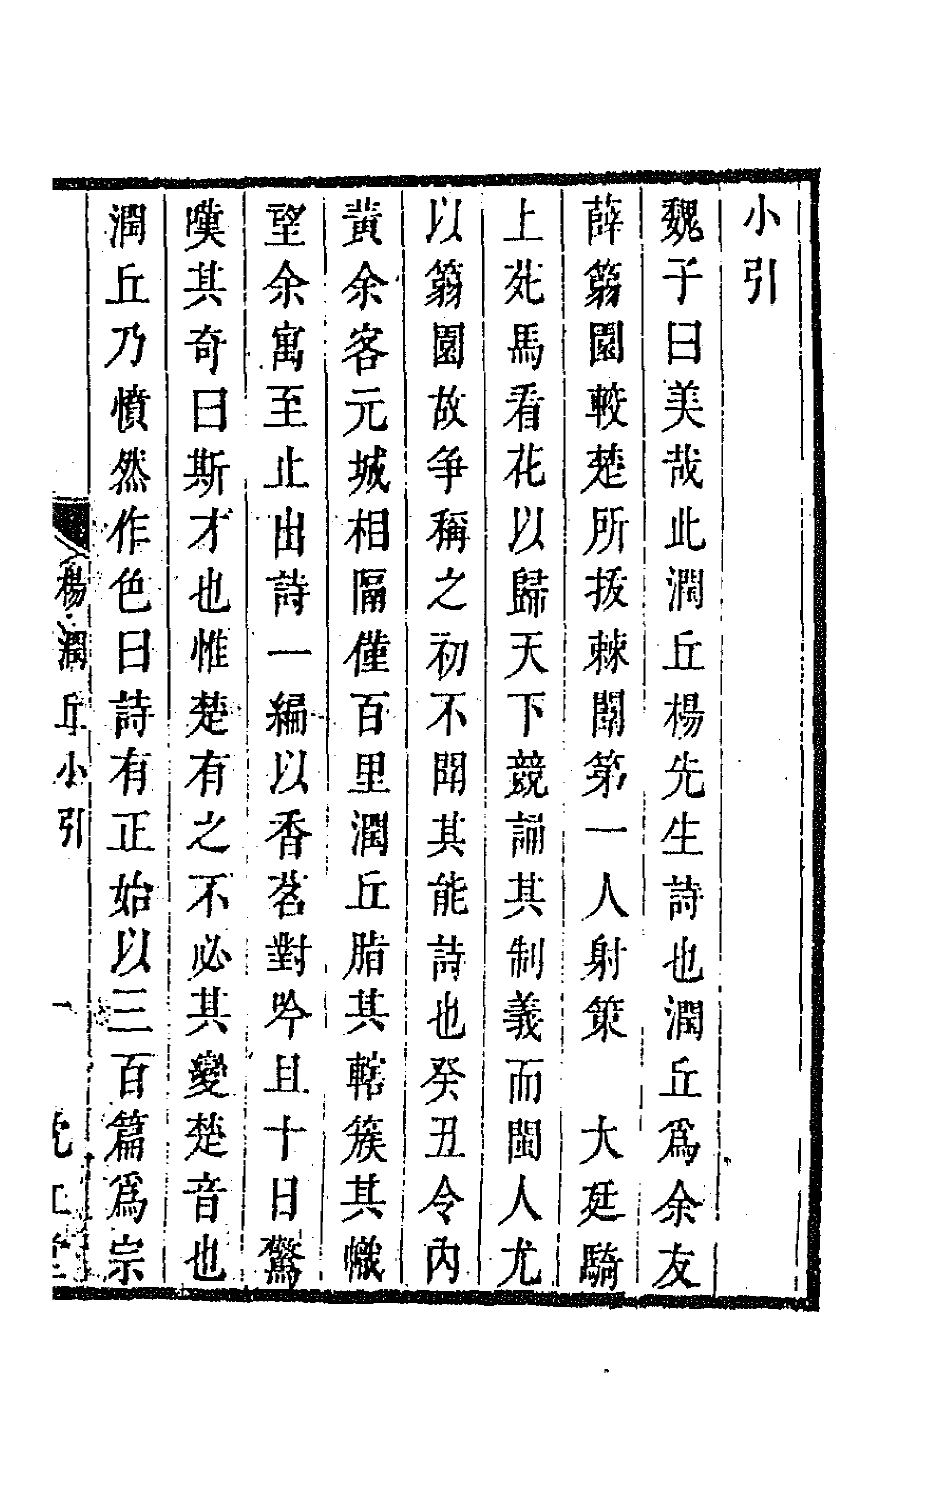 小引
魏子曰美哉此潤丘楊先生詩也潤丘爲余友
薛簜園較楚所拔棘闈第一人射策　大廷騎
上苑馬看花以歸天下競誦其制義而閩人尤
以簜園故争稱之初不聞其能詩也癸丑令內
黃余客元城相隔僅百里潤丘脂其轄簇其幟
望余寓至止出詩一編以香茗對吟且十日驚
嘆其奇曰斯才也惟楚有之不必其變楚音也
潤丘乃憤然作色曰詩有正始以三百篇爲宗
楊潤丘小引　一